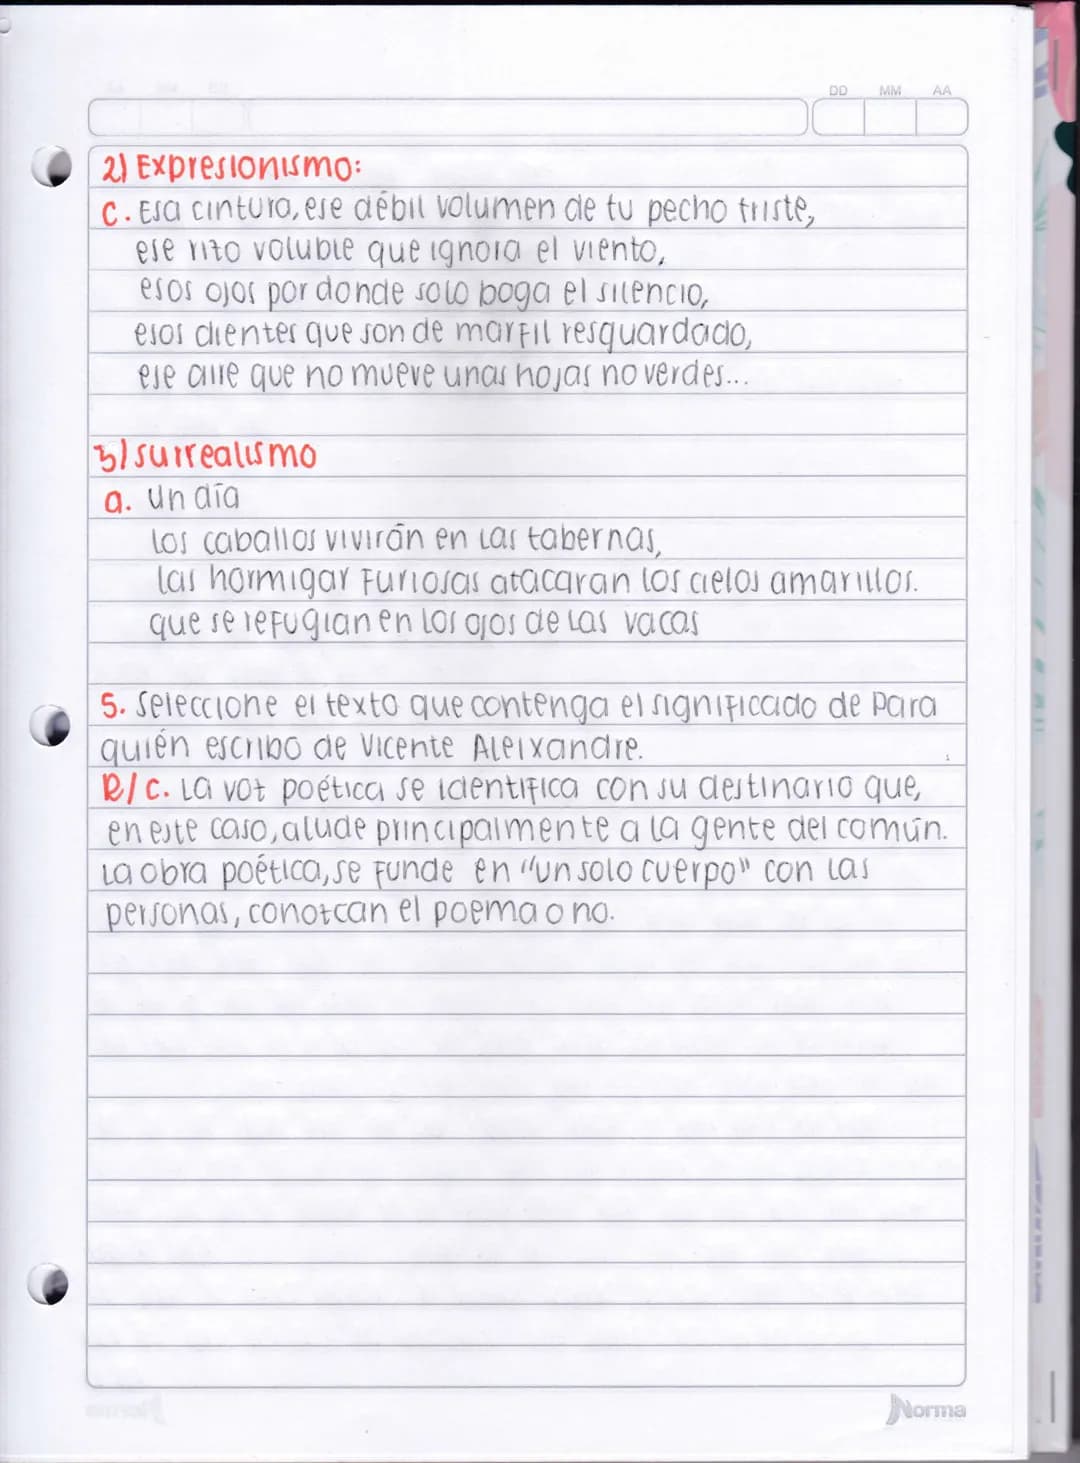 DD MM AA
2) Expresionismo:
c. Esa cintura, ese débil volumen de tu pecho triste,
ese rizo voluble que ignora el viento,
esos ojos por donde solo boga el silencio,
esos dientes que son de marfil resguardado,
ese aire que no mueve unas hojas no verdes...
3) surrealismo
a. un día
los caballos vivirán en las tabernas,
las hormigar furiosas atacaran los cielos amarillos.
que se refugian en los ojos de las vacas
5. Seleccione el texto que contenga el significado de Para
quién escribo de Vicente Aleixandre.
R/c. La voz poética se identifica con su destinario que,
en este caso, alude principalmente a la gente del común.
La obra poética, se funde en "un solo cuerpo" con las
personas, conozcan el poema o no.
Norma